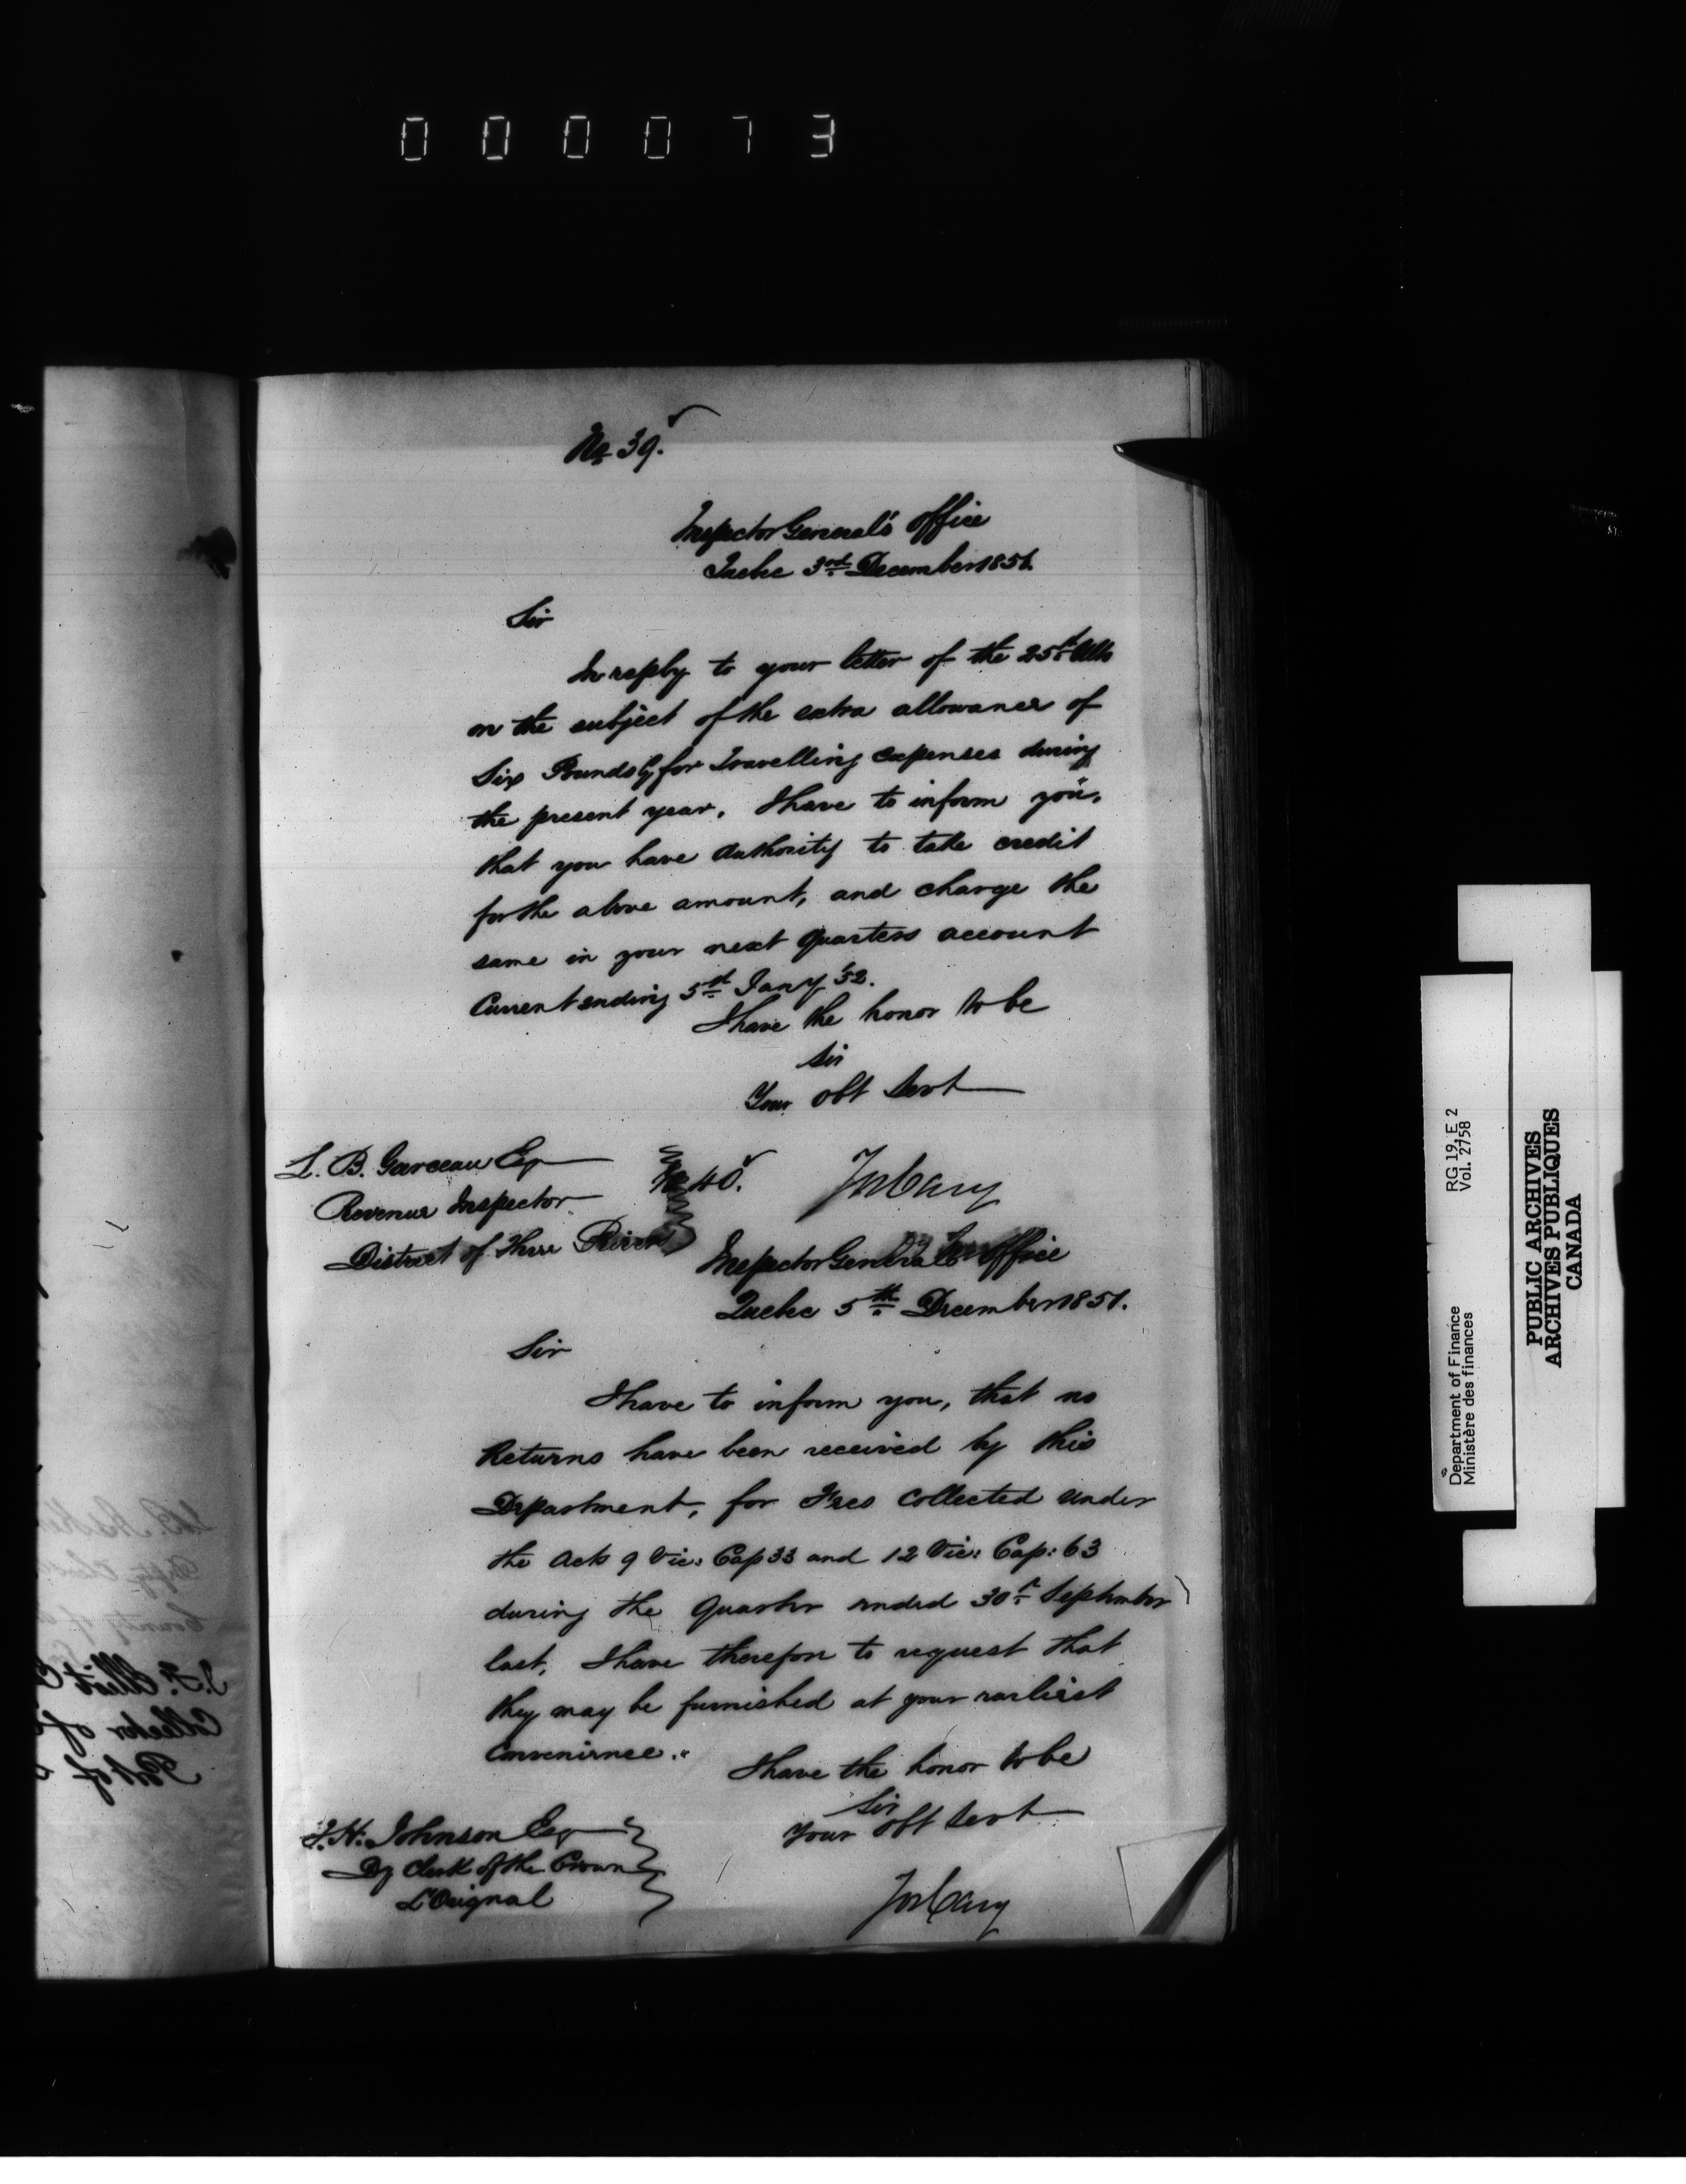 000073
No 39.
Inspector General's Office
Quebec 3rd December 1851.
Sir
In reply to your letter of the 25th Ulto
on the subject of the extra allowance of
Six Pounds Cy for Travelling expenses during
the present year. I have to inform you,
that you have authority to take credit
for the above amount, and charge the
same in your next Quarters account
Current ending 5th Jany '52.
I have the honor to be
Sir
Your Obt Servt
L. B. Garceau Esq
Revenue Inspector
District of Three Rivers
Jos Cary
No 40.
Inspector General's Office
Quebec 5th December 1851.
Sir
I have to inform you, that no
Returns have been received by this
Department, for Fees Collected under
the Acts 9 Vic: Cap 33 and 12 Vic: Cap: 63
during the Quarter ended 30th September
last, I have therefore to request that
they may be furnished at your earliest
Convenience.
I have the honor to be
Sir
Your Obt Servt
T. H. Johnson Esq
Dy Clerk of the Crown
L'Orignal
Jos Cary
RG 19, E 2
Vol. 2758
Department of Finance
Ministère des finances
PUBLIC ARCHIVES
ARCHIVES PUBLIQUES
CANADA